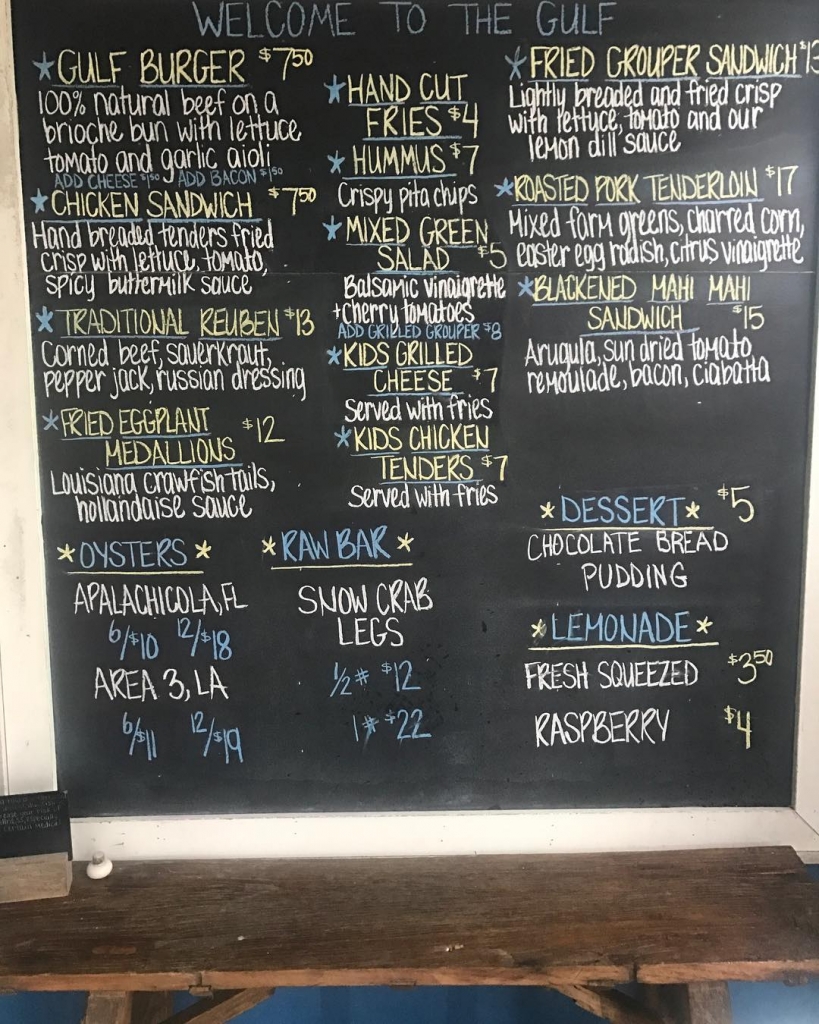 WELCOME TO THE GULF
*GULF BURGER $7.50
100% natural beef on a
brioche bun with lettuce
tomato and garlic aioli
ADD CHEESE $1.50 ADD BACON $1.50
*CHICKEN SANDWICH $7.50
Hand breaded tenders fried
crisp with lettuce, tomato,
spicy buttermilk sauce
*TRADITIONAL REUBEN $13
Corned beef, sauerkraut,
pepper jack, russian dressing
*FRIED EGGPLANT
MEDALLIONS $12
Louisiana crawfish tails,
hollandaise sauce
*HAND CUT
FRIES $4
*HUMMUS $7
Crispy pita chips
*MIXED GREEN
SALAD $5
Balsamic vinaigrette
+cherry tomatoes
ADD GRILLED GROUPER $8
*KIDS GRILLED
CHEESE $7
Served with fries
*KIDS CHICKEN
TENDERS $7
Served with fries
*FRIED GROUPER SANDWICH $13
Lightly breaded and fried crisp
with lettuce, tomato and our
lemon dill sauce
*ROASTED PORK TENDERLOIN $17
Mixed farm greens, charred corn,
easter egg radish, citrus vinaigrette
*BLACKENED MAHI MAHI
SANDWICH $15
Arugula, sun dried tomato
remoulade, bacon, ciabatta
*OYSTERS*
APALACHICOLA, FL
6/$10 12/$18
AREA 3, LA
6/$11 12/$19
*RAW BAR*
SNOW CRAB
LEGS
1/2# $12
1# $22
*DESSERT* $5
CHOCOLATE BREAD
PUDDING
*LEMONADE*
FRESH SQUEEZED $3.50
RASPBERRY $4